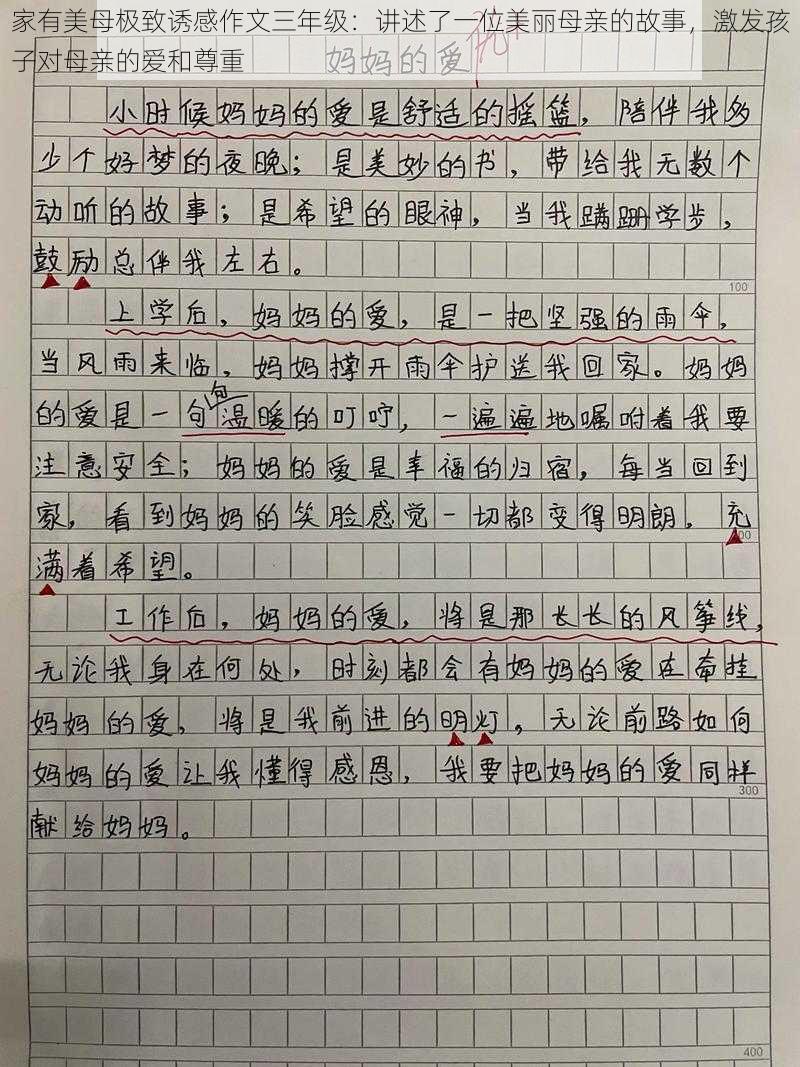 家有美母极致诱惑作文三年级：讲述了一位美丽母亲的故事，激发孩
子对母亲的爱和尊重
妈妈的爱 优
小时候妈妈的爱是舒适的摇篮，陪伴我多
少个好梦的夜晚；是美妙的书，带给我无数个
动听的故事；是希望的眼神，当我蹒跚学步，
鼓励总伴我左右。
100
上学后，妈妈的爱，是一把坚强的雨伞，
当风雨来临，妈妈撑开雨伞护送我回家。妈妈
的爱是一句句温暖的叮咛，一遍遍地嘱咐着我要
注意安全；妈妈的爱是幸福的归宿，每当回到
家，看到妈妈的笑脸感觉一切都变得明朗，充
满着希望。
工作后，妈妈的爱，将是那长长的风筝线，
无论我身在何处，时刻都会有妈妈的爱在牵挂
妈妈的爱，将是我前进的明灯，无论前路如何
妈妈的爱让我懂得感恩，我要把妈妈的爱同样
300
献给妈妈。
400